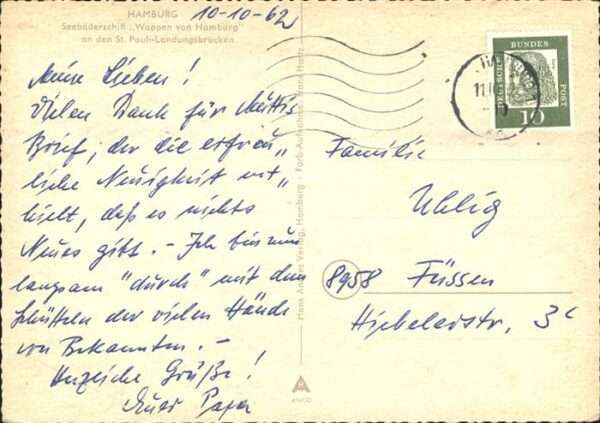 HAMBURG
10-10-62
Seebäderschiff „Wappen von Hamburg"
an den St. Pauli-Landungsbrücken
Meine Lieben!
Vielen Dank für Muttis
Brief, der die erfreu„
liche Neuigkeit ent„
hielt, daß es nichts
Neues gibt. - Ich bin nun
langsam "durch" mit dem
Schütteln der vielen Hände
von Bekannten. -
Herzliche Grüße!
Euer Papa
Hans Andres Verlag, Hamburg - Farb-Aufnahme: Hans Hartz
DEUTSCHE
BUNDES
POST
10
Familie
Uhlig
8958 Füssen
Hiebelerstr. 3c